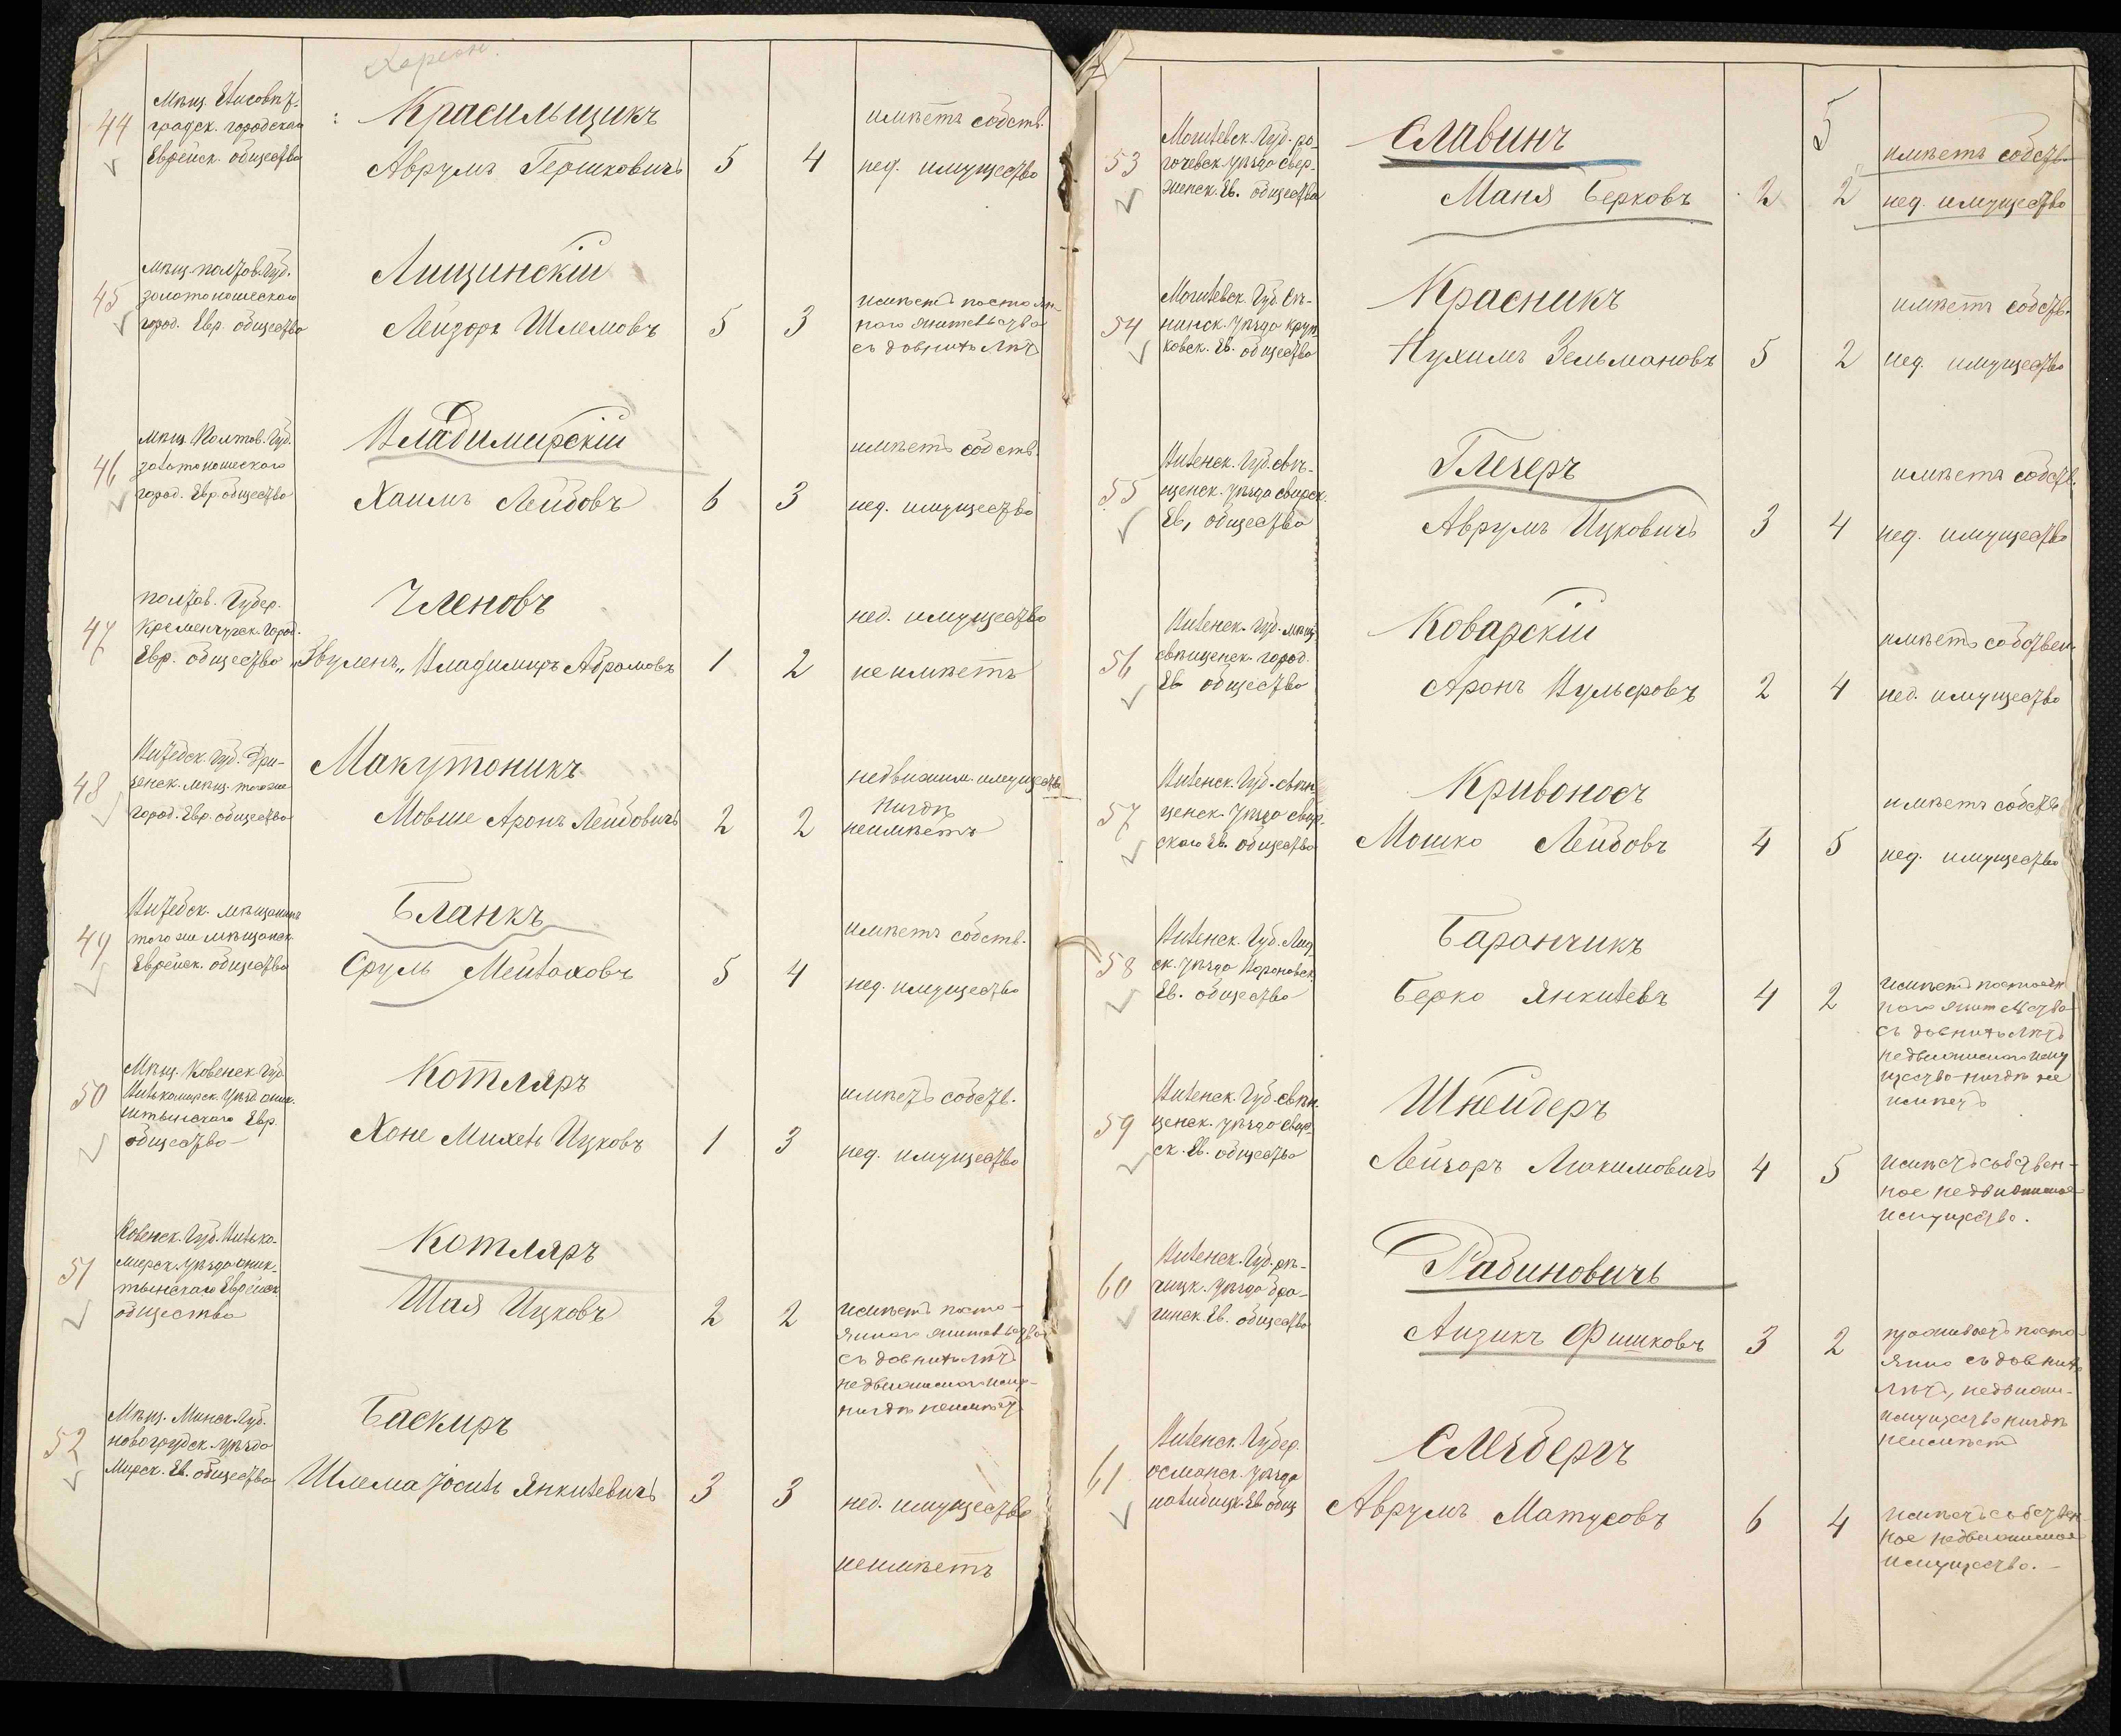 Херсон.
44
Мѣщ. Елисовет-
градск. городскаго
Еврейск. общества
Красильщикъ
Аврумъ Гершковичъ 5 4
имѣетъ собств.
нед. имущество
45
мѣщ. полтов. Губ.
золотоношескаго
город. Евр. общества
Лищинскій
Лейзоръ Шлемовъ 5 3
постоян-
наго жительства
съ довнихъ лѣтъ
46
мѣщ. Полтов. Губ.
золотоношескаго
город. Евр. общества
Владимирскій
Хаимъ Лейбовъ 6 3
имѣетъ собств.
нед. имущество
47
полтов. Губер.
Кременчугск. город.
Евр. общество
Членовъ
„Звуленъ„ Владимиръ Абрамовъ 1 2
нед. имущество
неимѣетъ
48
Витебск. Губ. Дри-
сенск. мѣщ. тогоже
город. Евр. общества
Макутоникъ
Мовше Аронъ Лейбовичъ 2 2
недвижим. имущества
нигдѣ
неимѣетъ
49
Витебск. мѣщанинъ
того же мѣщанск.
Еврейск. общества
Бланкъ
Сруль Мейлаховъ 5 4
имѣетъ собств.
нед. имущество
50
Мѣщ. Ковенск. Губ.
Вилькомирск. Уѣзд. оник-
штынскаго Евр.
общество
Котляръ
Хоне Михель Ицковъ 1 3
имѣетъ собств.
нед. имущество
51
Ковенск. Губ. Вилько-
мирск. уѣзда оник-
тынскаго Еврейск.
общества
Котляръ
Шая Ицковъ 2 2
посто-
яннаго жительства
съ довнихъ лѣтъ
недвижимаго имущ-
нигдѣ неимѣетъ
52
Мѣщ. Минск. Губ.
новогрудск. уѣзда
Мирск. Ев. общества
Баскиръ
Шлема Іосиль Янкилевичъ 3 3
нед. имущество
неимѣетъ
5
53
Могилевск. Губ. ро-
гочевск. уѣзда свер-
женск. Ев. общества
Славинъ
Маня Берковъ 2 2
имѣетъ собств.
нед. имущество
54
Могилевск. Губ. Сѣ-
нинск. уѣзда круп-
ковск. Ев. общества
Красникъ
Нухимъ Зельмановъ 5 2
имѣетъ собств.
нед. имущество
55
Виленск. Губ. свѣ-
щенск. уѣзда свирск.
Ев. общество
Глезеръ
Аврумъ Ицковичъ 3 4
имѣетъ собств.
нед. имущество
56
Виленск. Губ. мѣщ.
свѣщенск. город.
Ев. общество
Коварскій
Аронъ Вульфовъ 2 4
имѣетъ собствен.
нед. имущество
57
Виленск. Губ. свѣн-
ценск. уѣзда свир-
скаго Ев. общества
Кривоносъ
Мошко Лейбовъ 4 5
имѣетъ собств.
нед. имущество
58
Виленск. Губ. Лид-
ск. уѣзда Вороновск.
Ев. общество
Баранчикъ
Берко Янкилевъ 4 2
наго жительство
съ довнихъ лѣтъ
недвижимаго иму
щество нигдѣ не
имѣетъ
59
Виленск. Губ. свѣн-
ценск. уѣзда свир-
ск. Ев. общества
Шнейдеръ
Лейзоръ Люкимовичъ 4 5
имѣетъ собствен-
ное недвижимое
имущество.
60
Виленск. Губ. рѣ-
чицк. уѣзда бра-
гинск. Ев. общества
Рабиновичъ
Аизикъ Фишковъ 3 2
проживаетъ посто-
янно съ довнихъ
лѣтъ, недвижи-
имущество нигдѣ
неимѣетъ
61
Виленск. Губер.
османск. уѣзда
Ев. общ.
Слезбергъ
Аврумъ Матусовъ 6 4
имѣетъ собствен-
ное недвижимое
имущество.